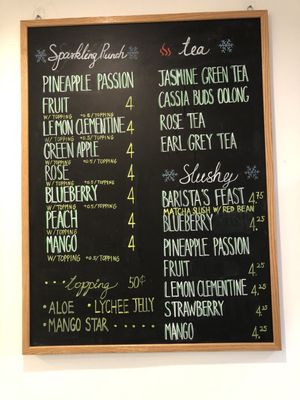 Sparkling Punch
PINEAPPLE PASSION
FRUIT 4
W/ TOPPING +0.5/TOPPING
LEMON CLEMENTINE 4
W/ TOPPING +0.5/TOPPING
GREEN APPLE 4
W/ TOPPING +0.5/TOPPING
ROSE 4
W/ TOPPING +0.5/TOPPING
BLUEBERRY 4
W/ TOPPING +0.5/TOPPING
PEACH 4
W/ TOPPING +0.5/TOPPING
MANGO 4
W/ TOPPING +0.5/TOPPING
topping 50¢
• ALOE • LYCHEE JELLY
• MANGO STAR
tea
JASMINE GREEN TEA
CASSIA BUDS OOLONG
ROSE TEA
EARL GREY TEA
Slushy
BARISTA'S FEAST 4.75
MATCHA SLUSH W/ RED BEAN
BLUEBERRY 4.25
PINEAPPLE PASSION
FRUIT 4.25
LEMON CLEMENTINE 4.25
STRAWBERRY 4.25
MANGO 4.25